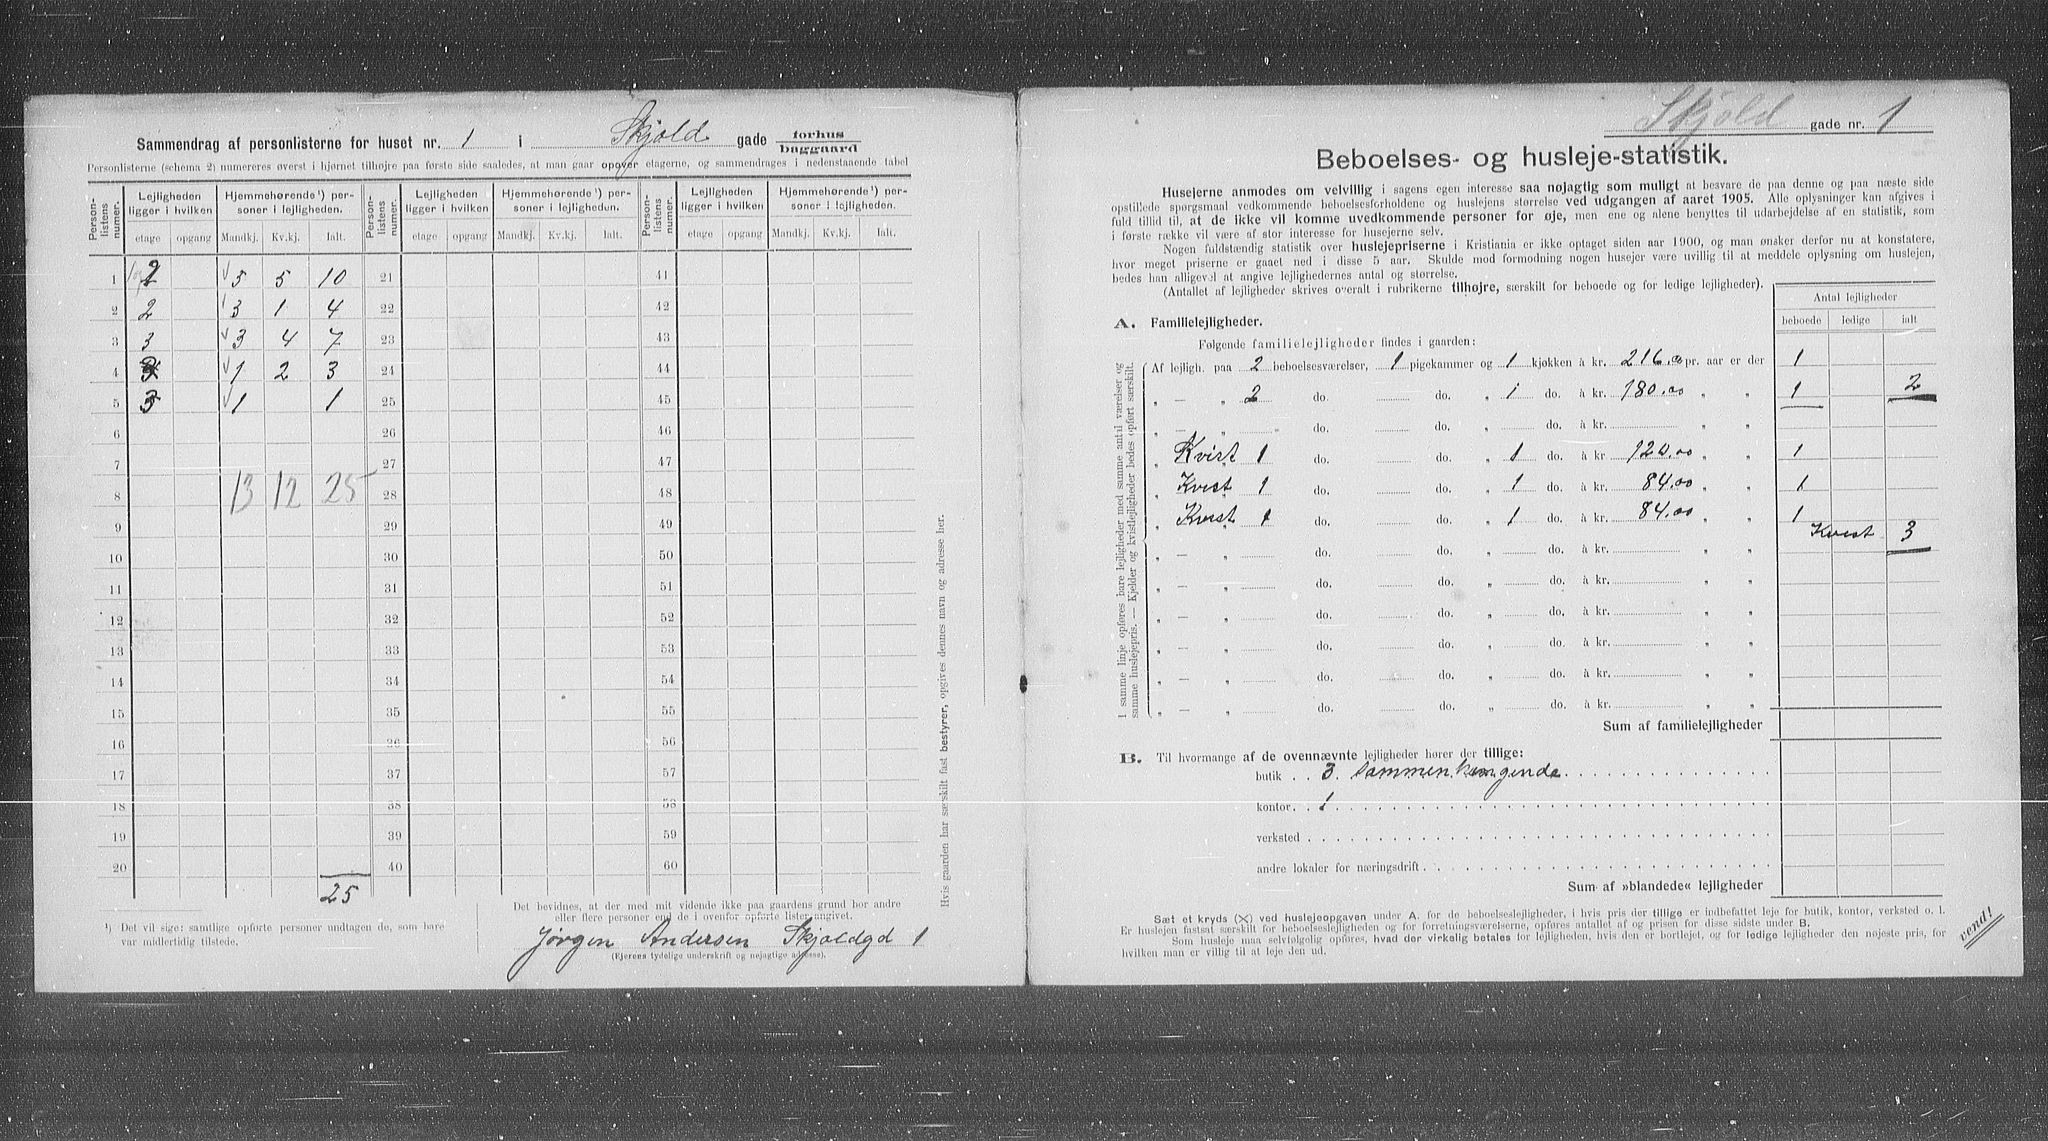 Sammendrag af personlisterne for huset nr. 1 i Skjold gade forhus baggaard
Personlisterne (schema 2) numereres øverst i hjørnet tilhøjre paa første side saaledes, at man gaar opover etagerne, og sammendrages i nedenstaaende tabel
Personlistens numer. Lejligheden ligger i hvilken Hjemmehørende¹) personer i lejligheden. Personlistens numer. Lejligheden ligger i hvilken Hjemmehørende¹) personer i lejligheden. Personlistens numer. Lejligheden ligger i hvilken Hjemmehørende¹) personer i lejligheden.
etage opgang Mandkj. Kv.kj. Ialt. etage opgang Mandkj. Kv.kj. Ialt. etage opgang Mandkj. Kv.kj. Ialt.
1 2 5 5 10 21 41
2 2 3 1 4 22 42
3 3 3 4 7 23 43
4 3 1 2 3 24 44
5 3 1 1 25 45
6 26 46
7 27 47
8 13 12 25 28 48
9 29 49
10 30 50
11 31 51
12 32 52
13 33 53
14 34 54
15 35 55
16 36 56
17 37 57
18 38 58
19 39 59
20 40 60
25
¹) Det vil sige: samtlige opførte personer undtagen de, som bare var midlertidig tilstede.
Det bevidnes, at der med mit vidende ikke paa gaardens grund bor andre
eller flere personer end de i ovenfor opførte lister angivet.
Jörgen Andersen Skjoldgd 1
(Ejerens tydelige underskrift og nøjagtige adresse).
Hvis gaarden har særskilt fast bestyrer, opgives dennes navn og adresse her.
Skjold gade nr. 1
Beboelses- og husleje-statistik.
Husejerne anmodes om velvillig i sagens egen interesse saa nøjagtig som muligt at besvare de paa denne og paa næste side
opstillede spørgsmaal vedkommende beboelsesforholdene og huslejens størrelse ved udgangen af aaret 1905. Alle oplysninger kan afgives i
fuld tillid til, at de ikke vil komme uvedkommende personer for øje, men ene og alene benyttes til udarbejdelse af en statistik, som
i første række vil være af stor interesse for husejerne selv.
Nogen fuldstændig statistik over huslejepriserne i Kristiania er ikke optaget siden aar 1900, og man ønsker derfor nu at konstatere,
hvor meget priserne er gaaet ned i disse 5 aar. Skulde mod formodning nogen husejer være uvillig til at meddele oplysning om huslejen,
bedes han alligevel at angive lejlighedernes antal og størrelse.
(Antallet af lejligheder skrives overalt i rubrikerne tilhøjre, særskilt for beboede og for ledige lejligheder).
Antal lejligheder
beboede ledige ialt
A. Familielejligheder.
Følgende familielejligheder findes i gaarden:
I samme linje opføres bare lejligheder med samme antal værelser og samme huslejepris. — Kjelder og kvistlejligheder bedes opført særskilt.
Af lejligh. paa 2 beboelsesværelser, 1 pigekammer og 1 kjøkken à kr. 216.00 pr. aar er der 1
„ — „ 2 do. do. „ 1 do. à kr. 180.00 „ „ 1 2
„ — „ do. do. „ do. à kr. „ „
„ Kvist 1 do. do. „ 1 do. à kr 120.00 „ „ 1
„ Kvist 1 do. do. „ 1 do. à kr. 84.00 „ „ 1
„ Kvist 1 do. do. „ 1 do. à kr. 84.00 „ „ 1
Kvist 3
„ — „ do. do. „ do. à kr. „ „
„ — „ do. do. „ do. à kr. „ „
„ — „ do. do. „ do. à kr. „ „
„ — „ do. do. „ do. à kr. „ „
„ — „ do. do. „ do. à kr. „ „
„ — „ do. do. „ do. à kr. „ „
Sum af familielejligheder
B. Til hvormange af de ovennævnte lejligheder hører der tillige:
butik . . 3. Sammenhængende
kontor. . 1
verksted
andre lokaler for næringsdrift
Sum af »blandede« lejligheder
Sæt et kryds (X) ved huslejeopgaven under A. for de beboelseslejligheder, i hvis pris der tillige er indbefattet leje for butik, kontor, verksted o. l.
Er huslejen fastsat særskilt for beboelseslejligheden og for forretningsværelserne, opføres antallet af og prisen for disse sidste under B.
Som husleje maa selvfølgelig opføres, hvad der virkelig betales for lejligheden, hvis den er bortlejet, og for ledige lejligheder den nøjeste pris, for
hvilken man er villig til at leje den ud.
vend!